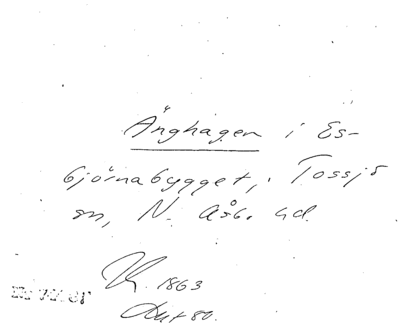 Änghagen i Es-
björnabygget, Tossjö
sn, N. Åsb. hd.
1863